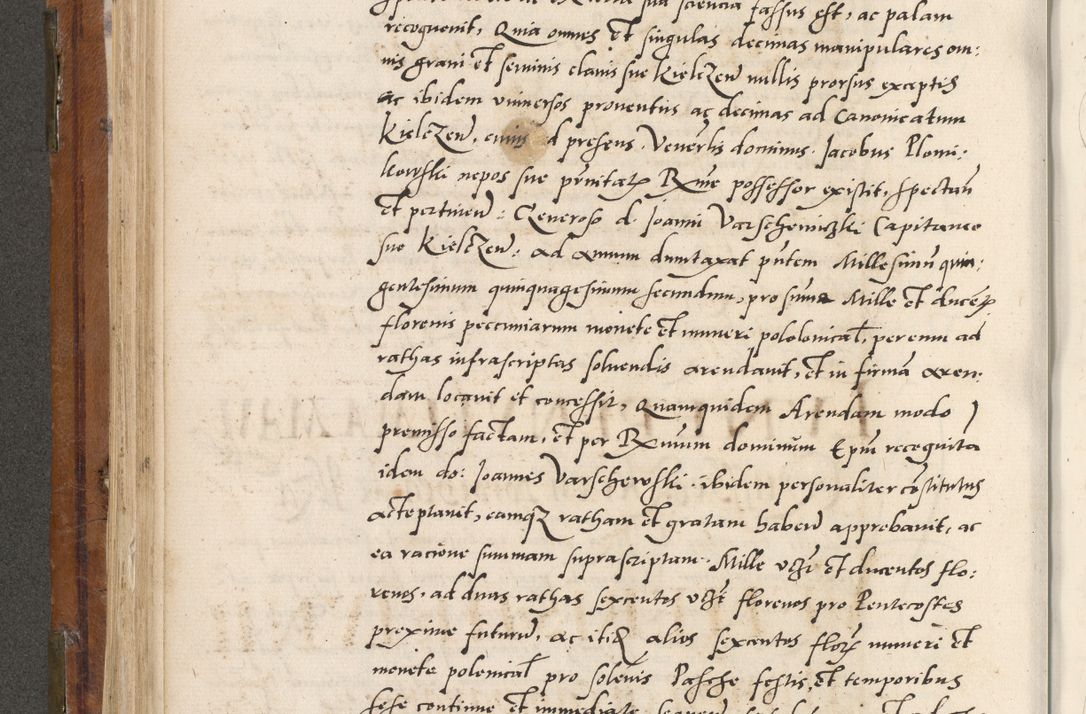 sua sciencia fassus est, ac palam
recognouit, Quia omnes et singulas decimas manipulares om:
nis grani et seminis clauis sue Kielczeń nullis prorsus exceptis
ac ibidem vniuersos prouentus ac decimas ad Canonicatum
Kielczeń, cuius d presens Venerlis dominus Jacobus Plomi:
kowski nepos sue prnitatis Rme possessor existit, spectań
et pertineń: Generoso d. Joanni Varscheuiczki Capitaneo
sue Kielczeń: ad annum duntaxat pntem Millesimu quin:
gentesimum quinquagesimum secundum, pro suma Mille et ducen
florenis pecuniarum monete et numeri pololonical, per eum ad
rathas infrascriptas soluendis arendauit, et in firma aren:
dam locauit et concessit, Quamquidem Arendam modo
premisso factam, et per Rximum dominum Epm recognita
idem do: Joannes Varschewski ibidem personaliter costitutus
acceptauit, eamqz ratham et gratam haberi approbauit, ac
ea racione summam suprascriptam Mille vgi et ducentos flo:
renos, ad duas rathas sexcentos vgi florenos pro Pentecostes
proxime futuru, ac itid alios sexcentos flor numeri et
monete polonical pro solenis Pasche festis, et temporibus
sese continue et immediate